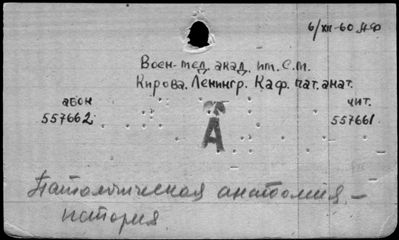 6/XII-60 НФ
Воен-мед. акад. им. С.М.
Кирова. Ленингр. Каф. пат. анат.
абон
557662
чит.
557661
А
Патологическая анатомия –
история